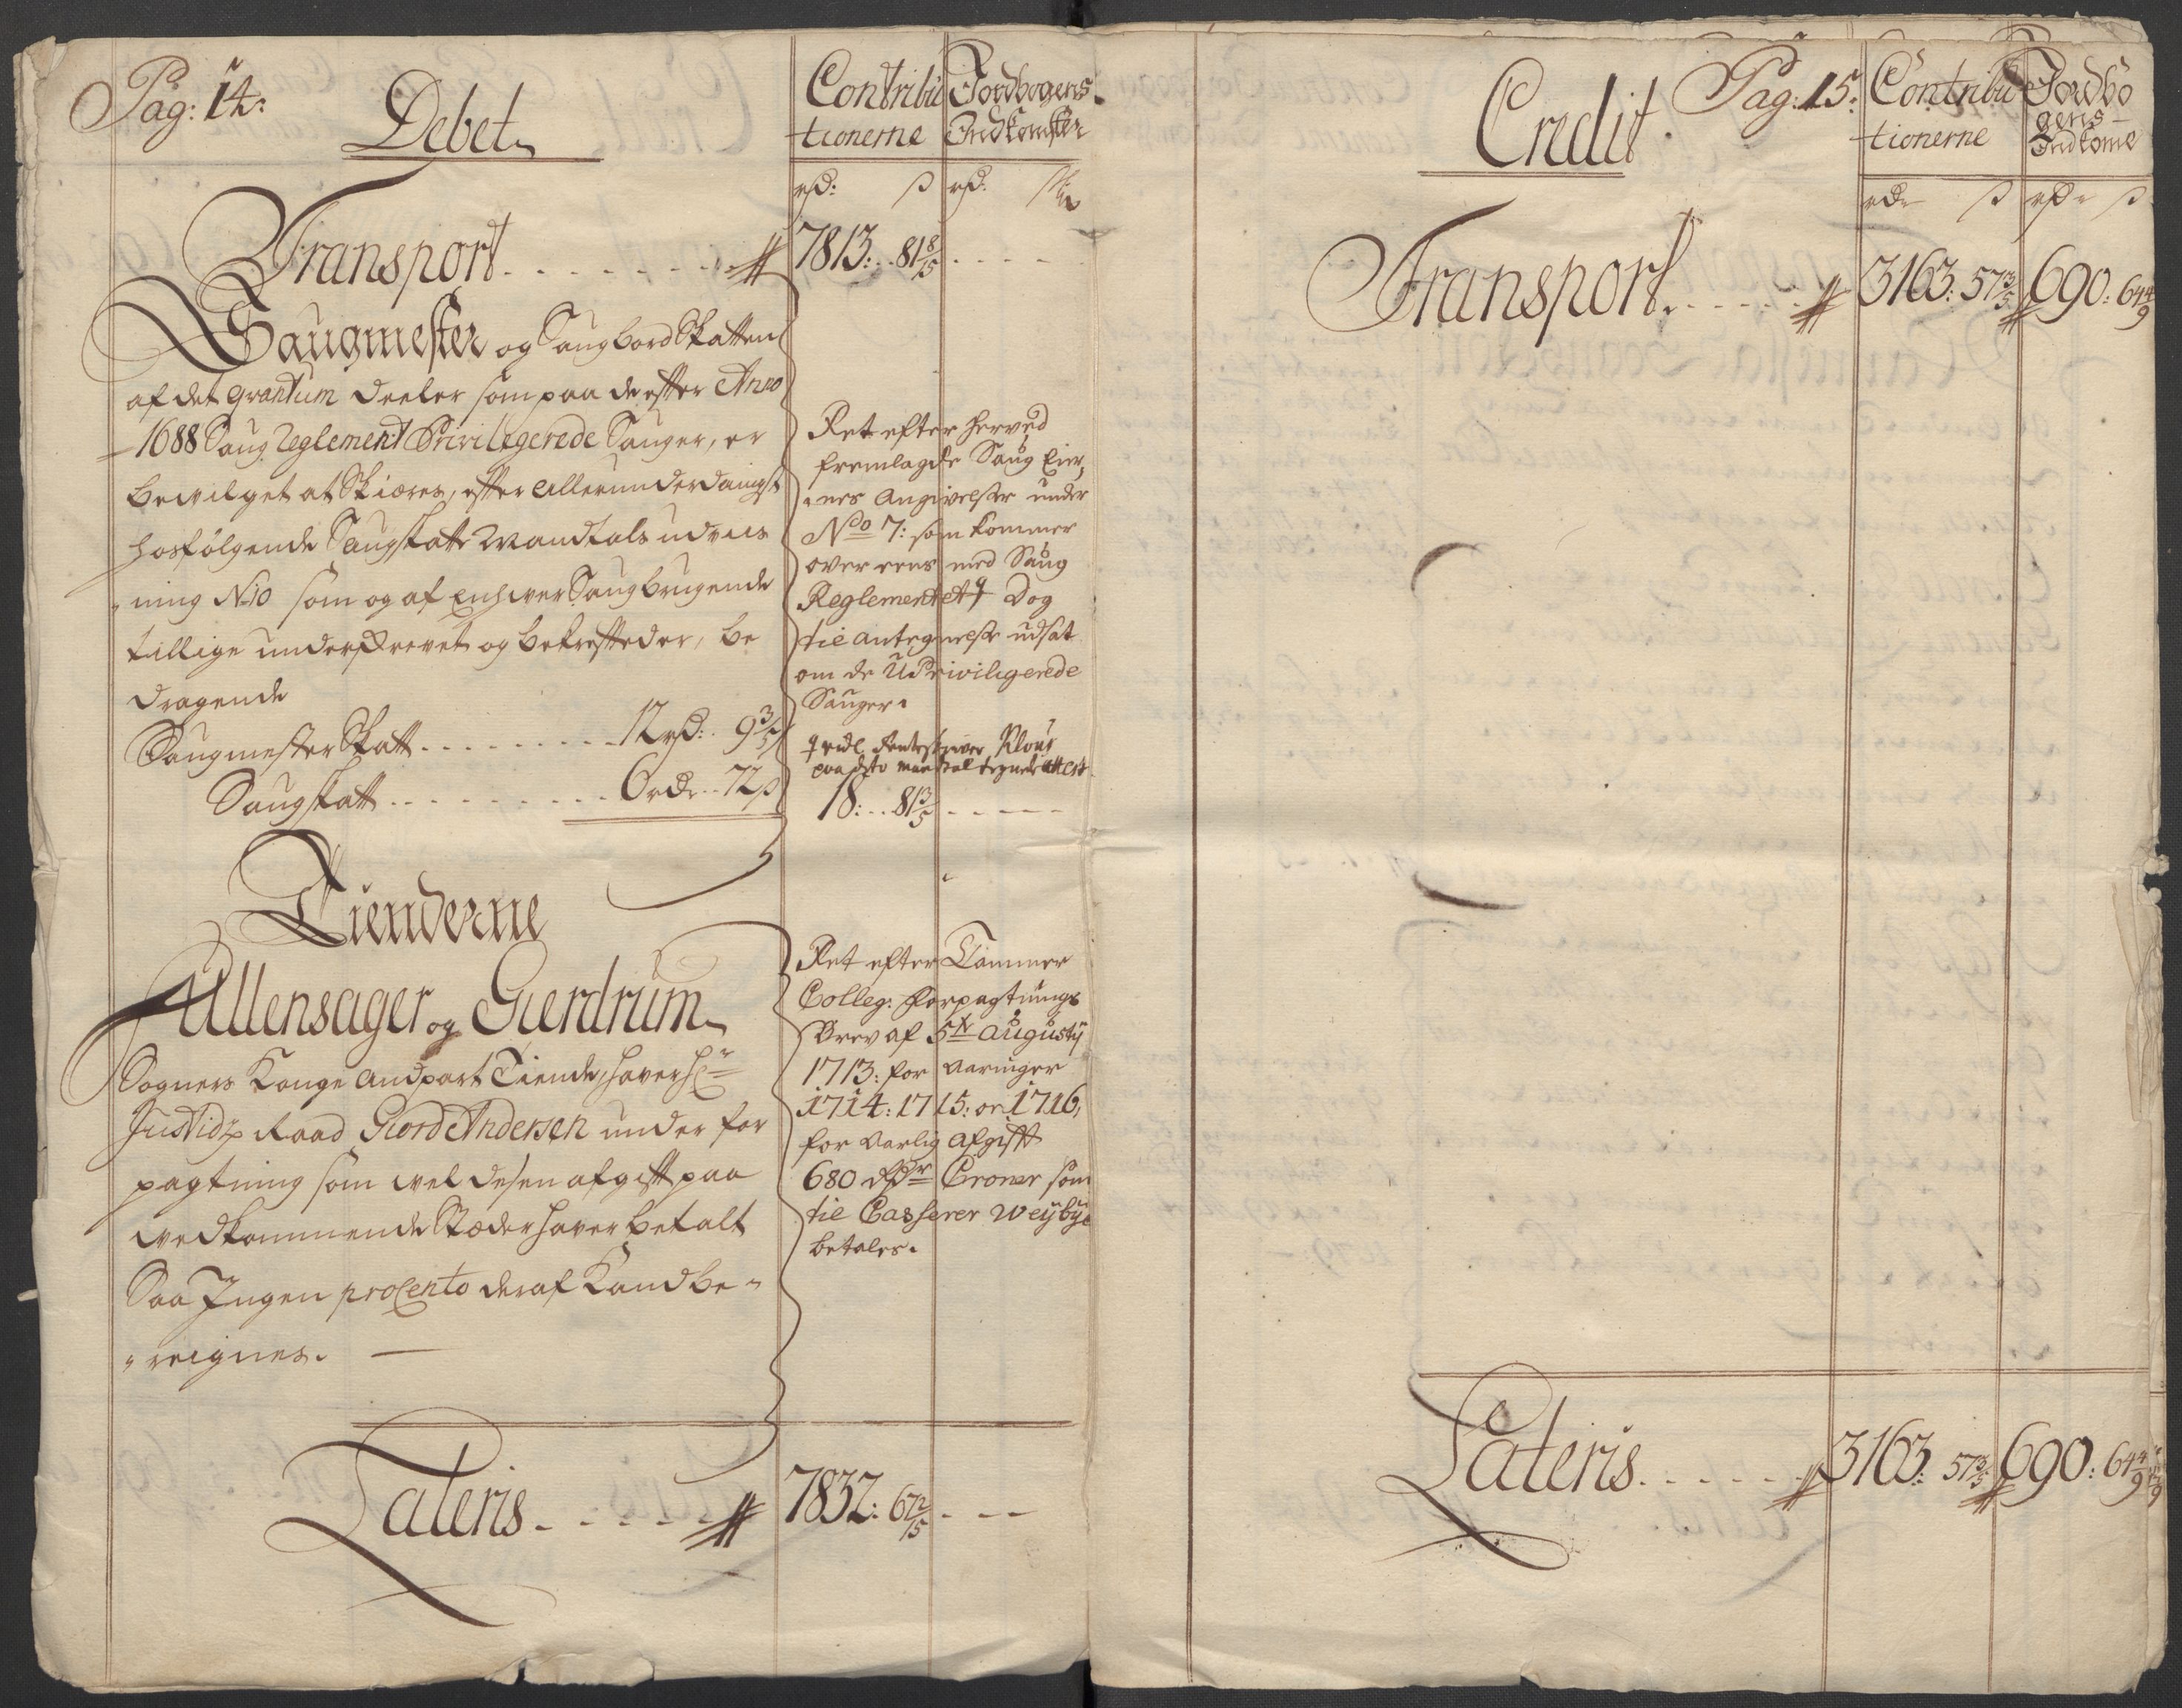 Pag: 14:
Debet
Contribu
tionerne
Jordbogens
Indkomster
rd: ß rd: ß
Transport 7813: 81 8/15
Saugmester og Saugbord Skatten
af det qvantum deeler som paa de effter Anno
1688 Saug Reglement Privilegerede Sauger, er
bevilget at Skiæres, effter allerunderdanigst
hosfølgende Saugskatte Mandtals udviis
ning No 10 som og af Enhver Saugbrugende
tillige underskrevet og bekreftted er, be
dragende
Saugmester Skatt 12 rd: 9 3/5 ß
Saugskatt 6 rd: 72 ß
Ret efter herved
fremlagde Saug Eier,
nes Angivelser under
No 7: som kommer
over eens med Saug
Reglementet Dog
til antegnelse udsat
om de UPriviligerede
Sauger.
18: 81 3/5
Tienderne
Ullensager og Gierdrum
Sogners Konge Andpart Tiende, haver Hr
Justidz Raad Giord Andersen under for
pagtning som vel desen afgifft paa
vedkommende Stæder haver betalt
Saa Ingen procento deraf Kand be
reignes.
Ret efter Cammer
Colleg: Forpagtnings
Brev af 5te Augustij
1713: for Aaringer
1714: 1715: og 1716,
for Aarlig Afgifft
680 Rdr Croner som
til Casserer Weybye
betales.
Lateris 7832: 67 2/15
Pag: 15:
Credit
Contribu
tionerne
Jordbo
gens
Indkome
rd ß rd ß
Transport 3163: 57 3/5 690: 64 4/9
Lateris 3163: 57 3/5 690: 64 4/9